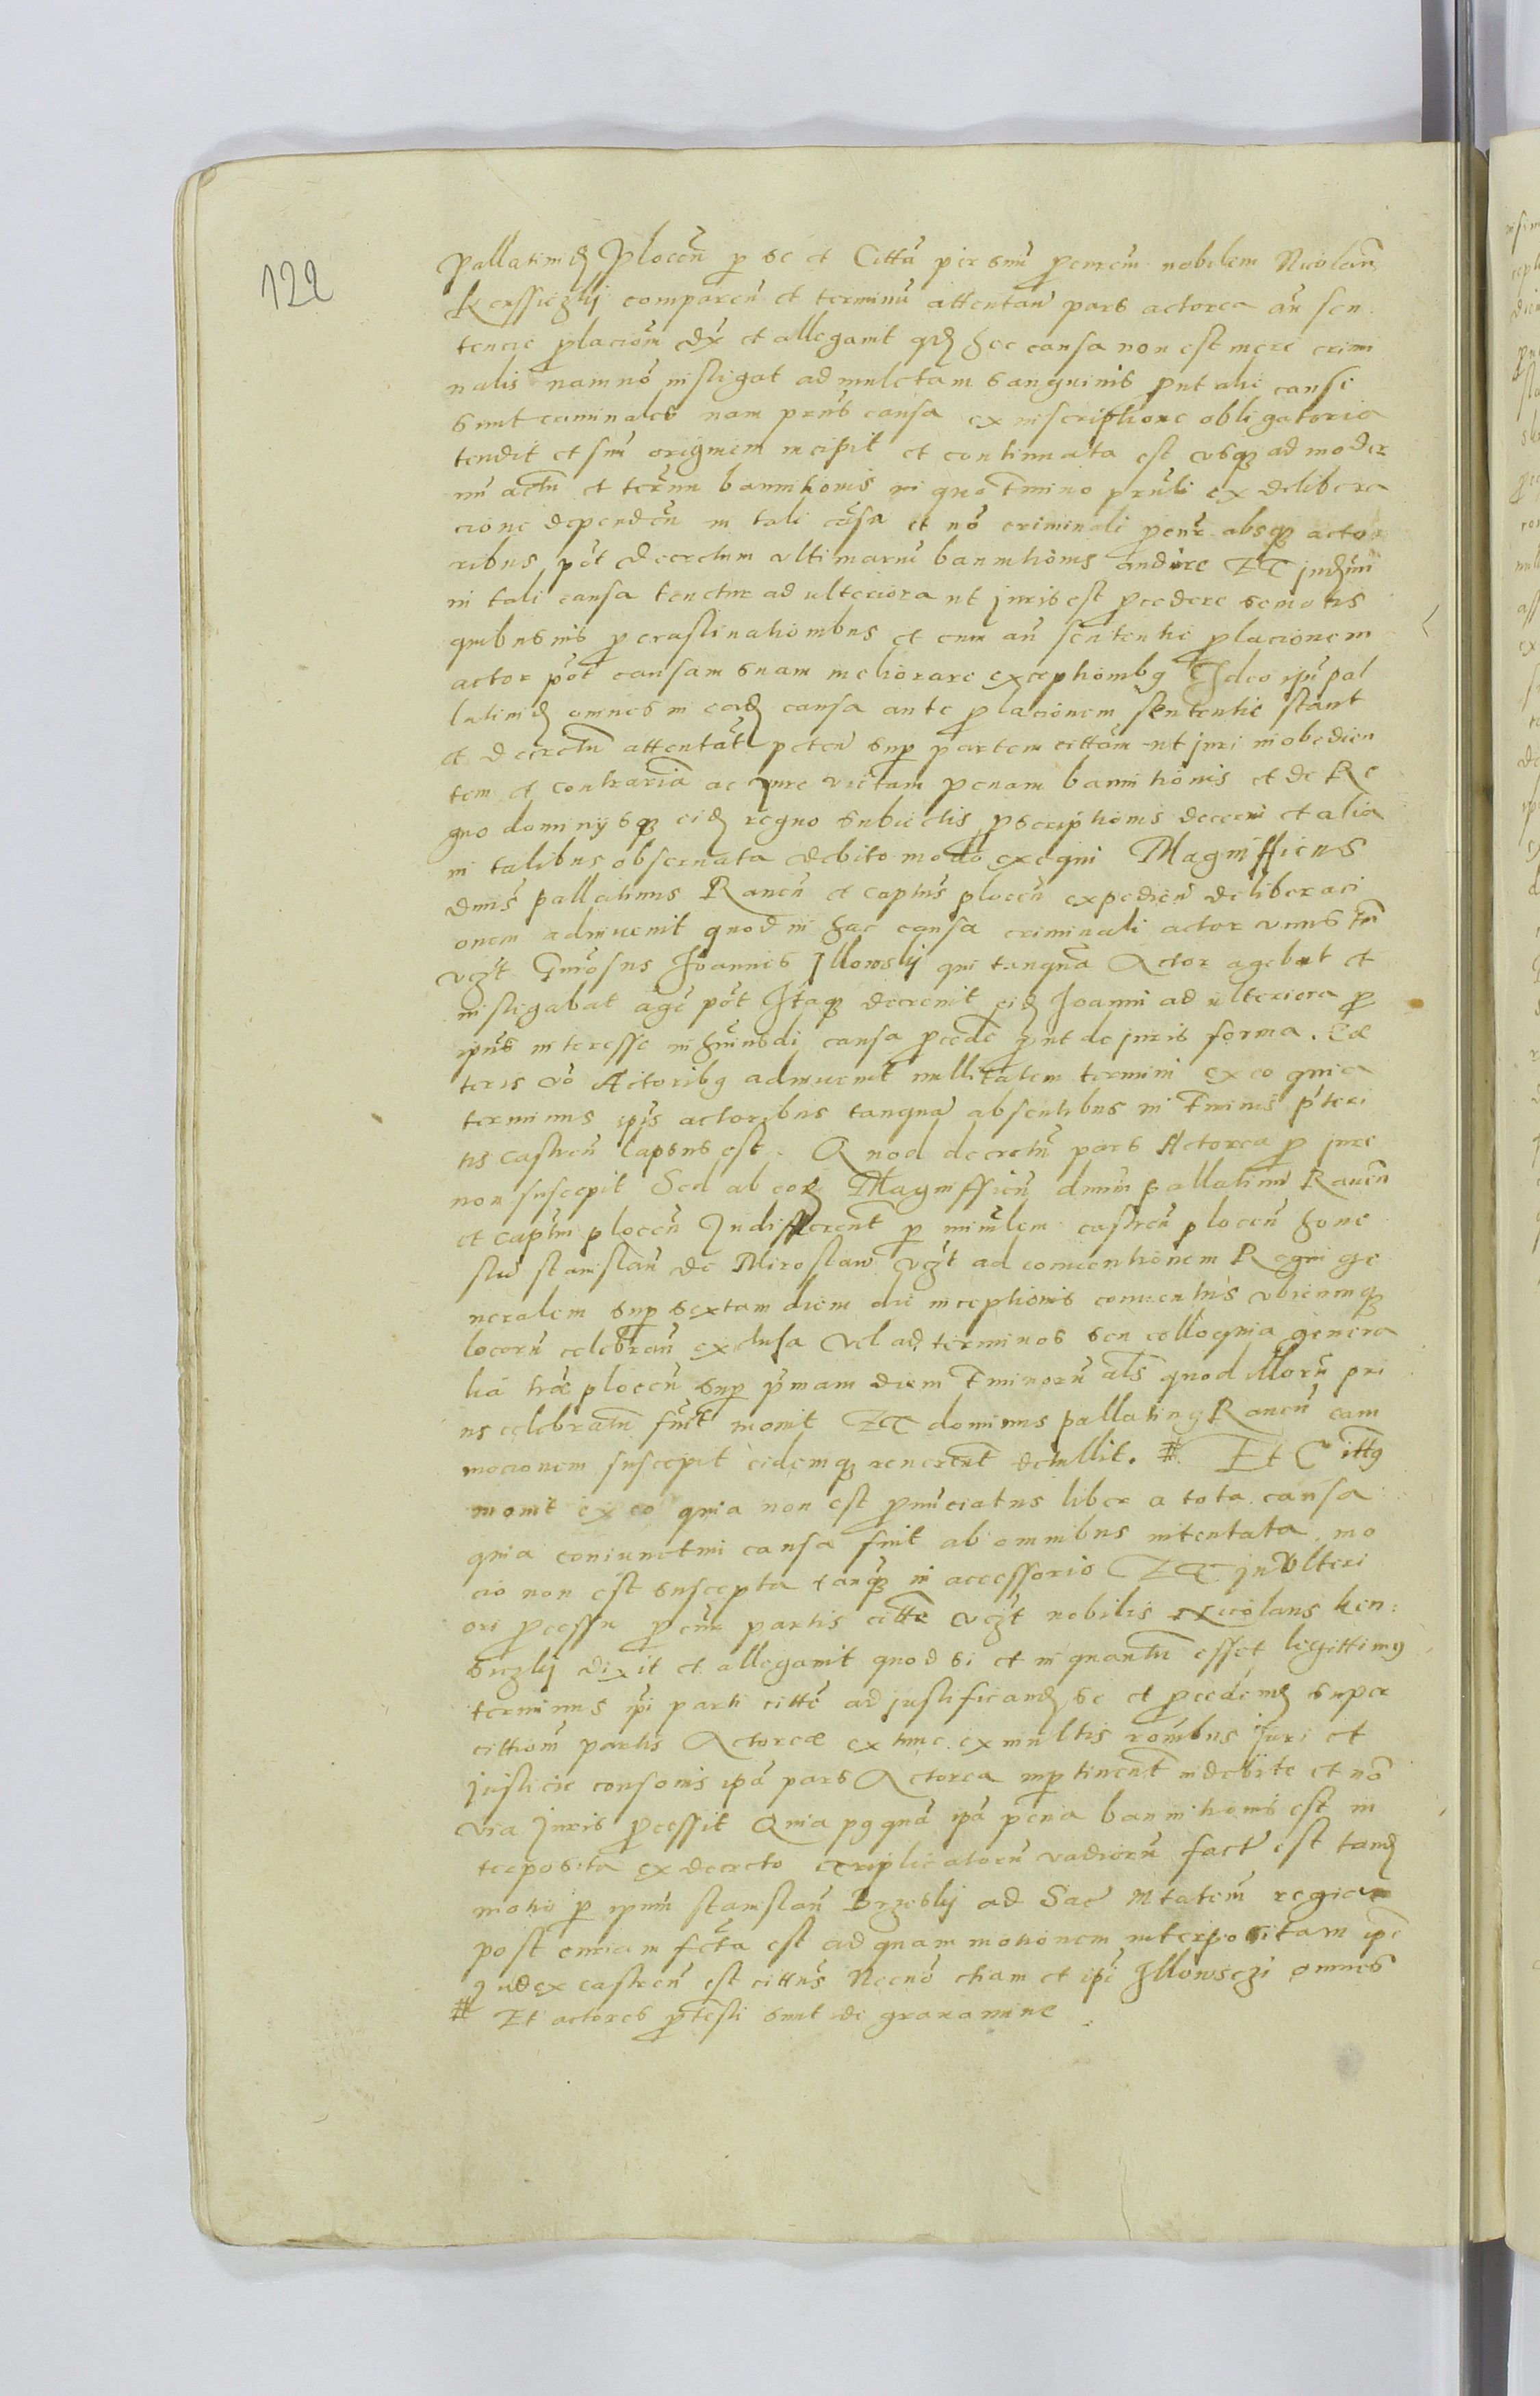 122
Pallatinid Plocen p se et Citta per suu pcnrem nobilem Nicolau
Kensiczkij comparen et terminu attentan pars actorea an sen
tencie placiom dix et allegavit qd hec causa non est mere crimi
nalis nam no instigat ad mulctam sanguinis put alie cause
sunt criminales nam pns causa ex inscriptione obligatoria
tendit et sui originem incipit et continuata est usq ad moder
nu actu et terminu bannitionis in quo tmino pnti ex delibera
cione dependen in tali causa et no criminali pcur absq acto
ribus pot decretum ultimarum bannitionis audire ET judium
in tali causa tenetur ad ulteriora ut juris est pcedere semotis
quibusuis pcrastinationibus et cum an sententie placionem
actor pot causam suam meliorare exceptionibq Ideo ipi pal
latinid omnes in eadem causa ante placionem sententie stant
et decretu attentat peten sup partem cittam ut juri inobedien
tem et contraria ac jure victam penam bannitionis et de Re
gno dominysq eid regno subiectis pscriptionis decerni et alia
in talibus obseruata debito modo exequi Magnifficus
dnus pallatinus Rauen et captus plocen expedien deliberaci
onem adinuenit quod in hac causa criminali actor unus tm
vzt Gnrosus Joannes Jllowskij qui tanqua Actor agebat et
instigabat age pot Itaq decreuit eid Joanni ad ulteriora p
ipius interesse in huiusdi causa pcede put de juris forma. Cae
teris vo Actoribq adinuenit nullitatem termini ex eo quia
terminus ipis actoribus tanqua absentibus in tminis pteri
tis castren lapsus est. Quod decretu pars Actorea p jure
non suscepit Sed ab eod Magnifficu dnum pallatinu Rauen
et captm plocen Indifferent p mintlem castren plocen hone
stu stanislau de Miroslaw vzt ad conuentionem Regni ge
neralem sup sextam diem die inceptionis conuentus ubicunq
locoru celebran exclusa Vel ad terminos seu colloquia genera
lia trae plocen sup pmam diem tminoru als quod illoru pri
us celebratu fuit mouit ET dominus pallatinq Rauen eam
mocionem suscepit eidemq reuerent detullit. # Et Cittq
mouit ex eo quia non est pnunciatus liber a tota causa
quia coniunctim causa fuit ab omnibus intentata mo
cio non est suscepta tanq in accessorio ET in Ulteri
ori pcessu pcur partis citte vzt nobilis Nicolaus Ken:
siczkij dixit et allegauit quod si et in quantu esset legittimq
terminus ipi parti citte ad justificand se et pcedend super
cittiom partis Actoreae ex tunc ex multis roibus Juri et
justicie consonis ipa pars Actorea impertinent indebite et no
via Juris pcessit Quia pqqua ipa pena bannitionis est in
terposita ex decreto triplicatoru vadioru fact est tand
motio p ipum stanislau Brzeskij ad Sac Mtatem regiam
post curiam fcta est ad quam motionem interpositam ipe
Judex castren est cittus Necno etiam et ipi Jllowsczi omnes
# Et actores ptesti sunt de grauamine